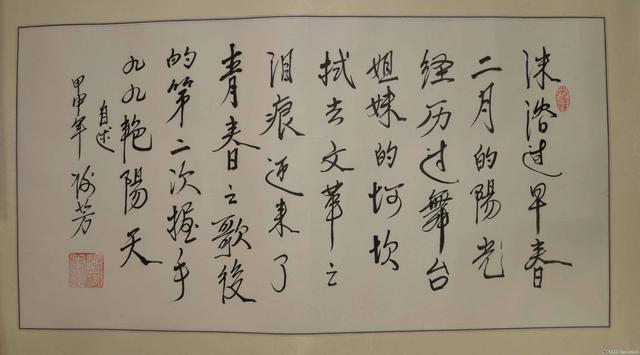 沐浴过早春
二月的陽光
经历过舞台
姐妹的坷坎
拭去文革之
泪痕迎来了
青春之歌後
的第二次握手
九九艳陽天
自述
甲申年 谢芳